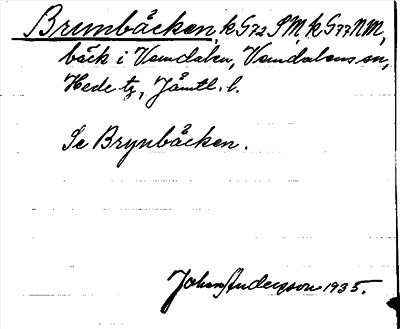 Brunbäcken, k G72 SM k G77 NM,
bäck i Vemdalen, Vemdalens sn,
Hede tg, Jämtl. l.
Se Brynbäcken.
Johan Andersson 1935.